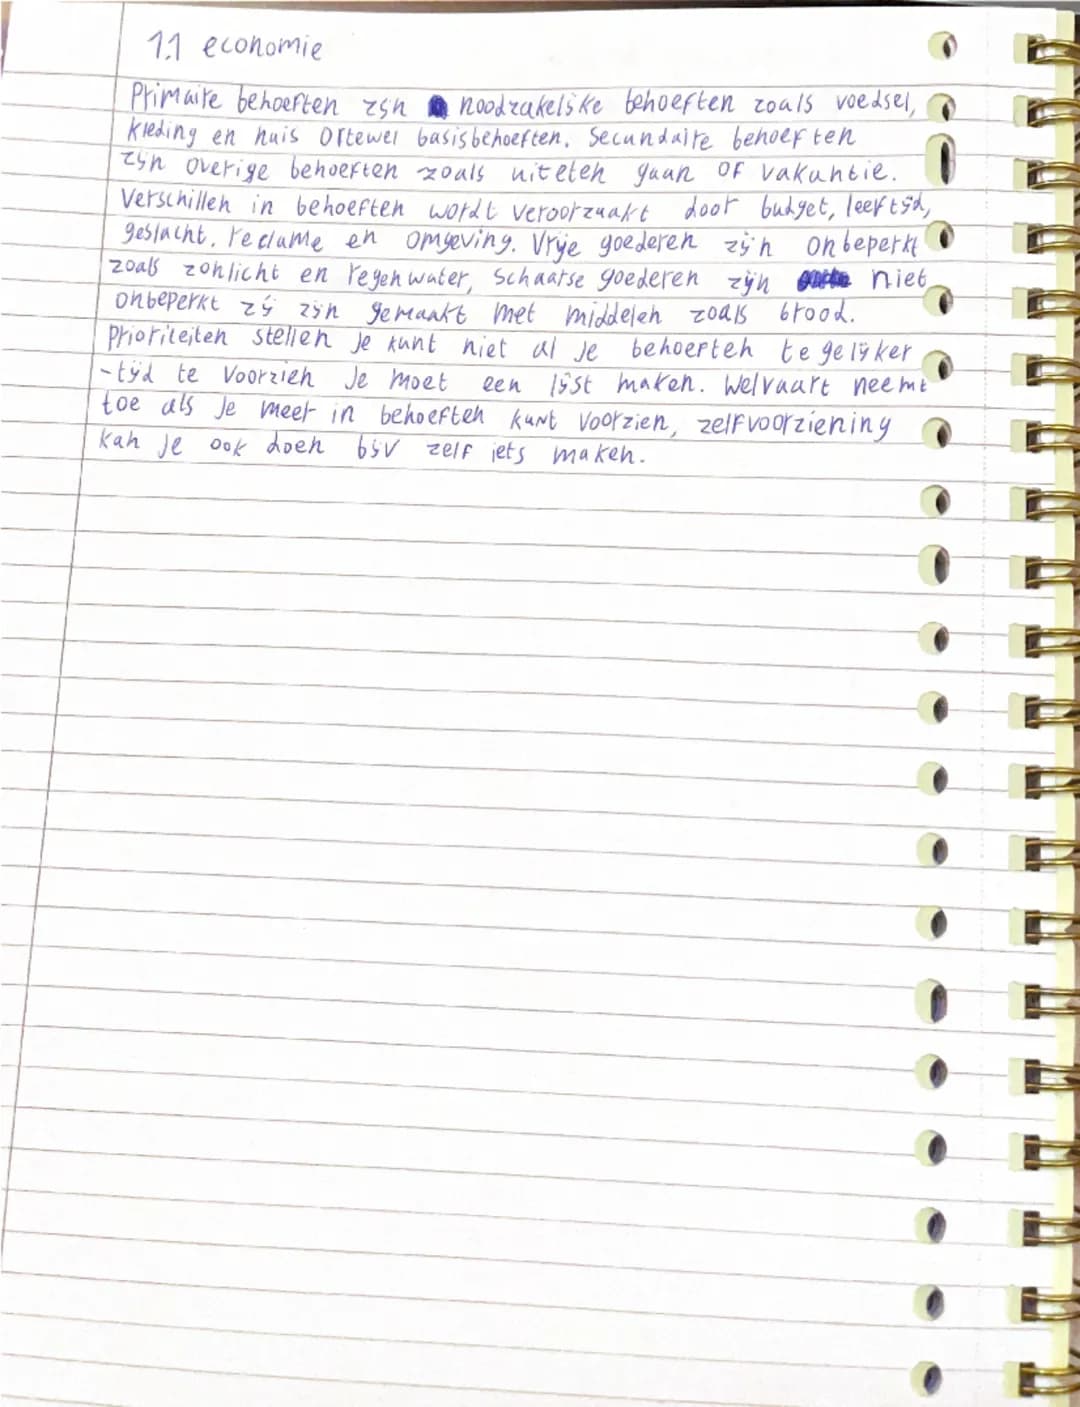 1.1 economie
Primaire behoeften zijn noodzakelijke behoeften zoals voedsel,
kleding en huis oftewel basisbehoeften. Secundaire behoeften
zijn overige behoeften zoals uiteten gaan of vakantie.
Verschillen in behoeften wordt veroorzaakt door budget, leeftijd,
geslacht, reclame en omgeving. Vrije goederen zijn onbeperkt
zoals zonlicht en regenwater, schaarse goederen zijn niet
onbeperkt zij zijn gemaakt met middelen zoals brood.
Prioriteiten stellen je kunt niet al je behoeften tegelijker
-tijd te voorzien Je moet een lijst maken. Welvaart neemt
toe als je meer in behoeften kunt voorzien, zelfvoorziening
kan je ook doen bijv zelf iets maken.